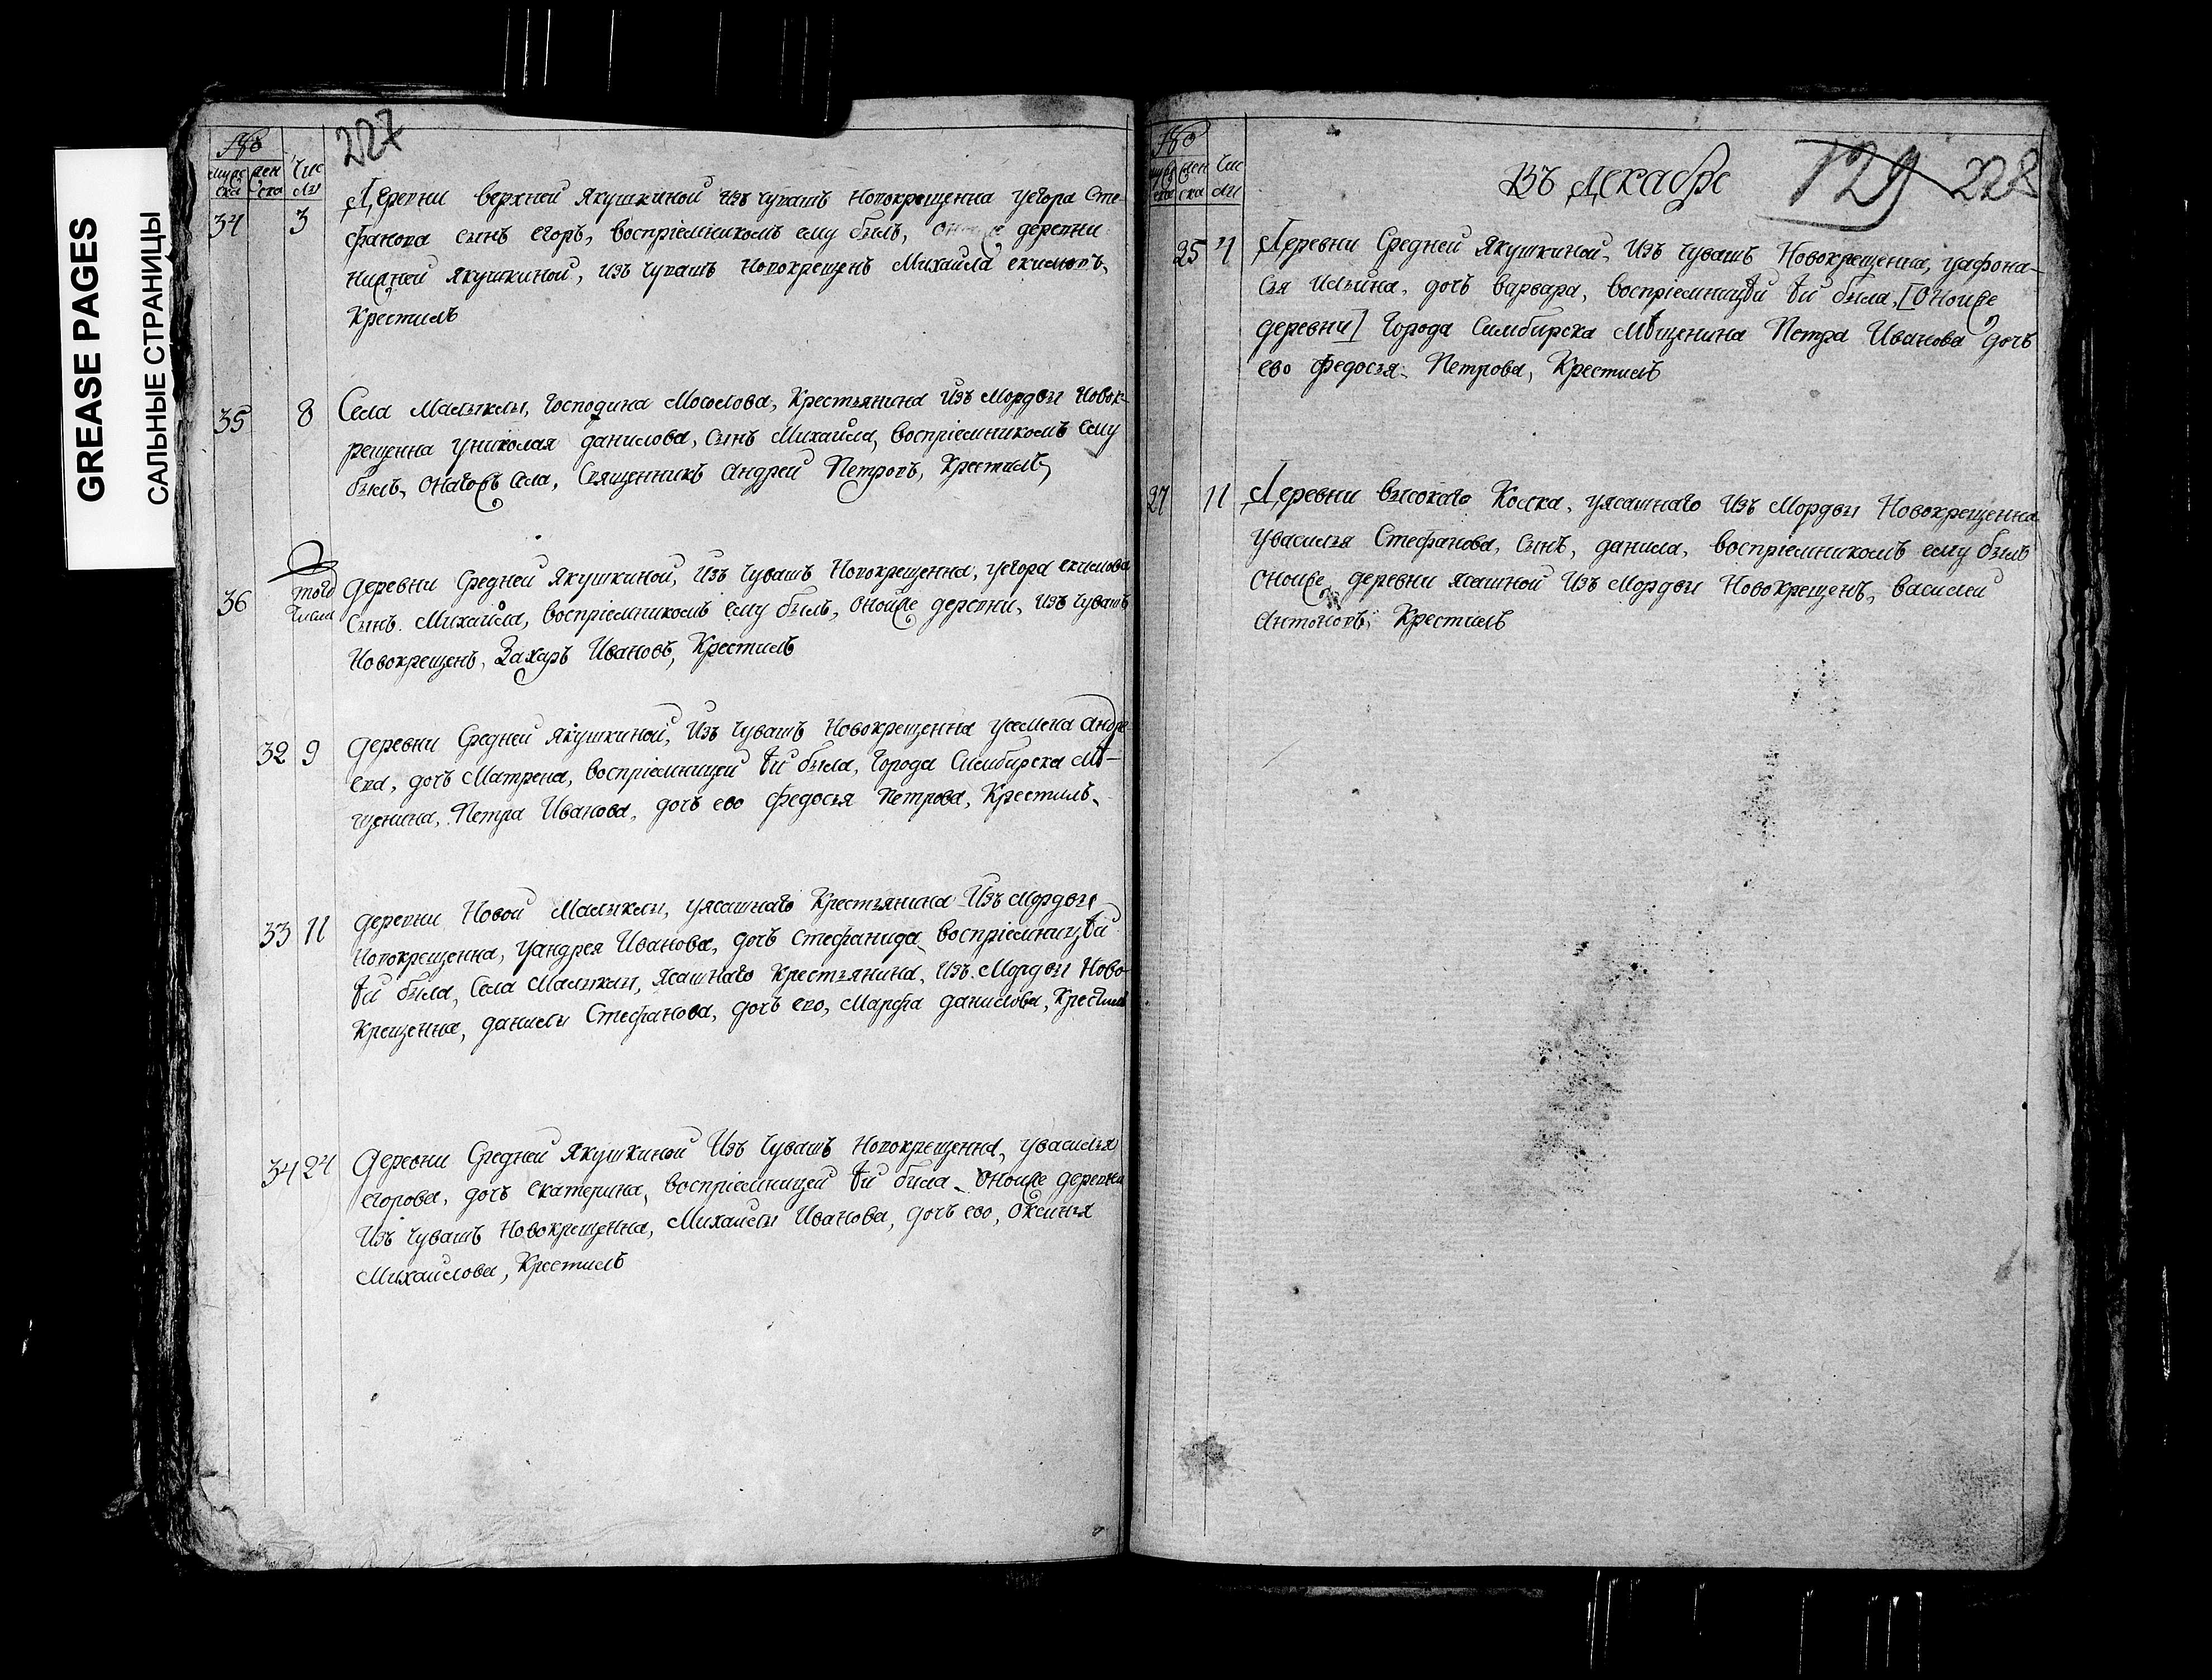 GREASE PAGES
САЛЬНЫЕ СТРАНИЦЫ
227
мужс ска
жен ска
Чис ла
34 3 Деревни верхней Якушкиной изъ чувашъ новокрещенна уегора Сте
фанова сынъ егоръ, воспріемникомъ ему былъ, деревни
нижней Якушкиной, изъ чувашъ новокрещенъ Михайла екимовъ,
Крестилъ
35 8 Села Малыклы, Господина Мосолова, Крестьянина изъ Мордвы новок-
рещенна униколая данилова, сынъ Михайла, воспріемникомъ ему
былъ, онагожъ села, Священникъ Андрей Петровъ, Крестилъ,
36 того числа деревни Средней Якушкиной, изъ чувашъ новокрещенна, уегора екимова
Сынъ Михайла, воспріемникомъ ему былъ, онойже деревни, изъ чувашъ
Новокрещенъ, Захаръ Ивановъ, Крестилъ
32 9 деревни Средней якушкиной, изъ чувашъ Новокрещенна усемена Андре
ева, дочь Матрена, воспріемницей ѣи была, Города Симбирска Мѣ-
щенина, Петра Иванова, дочь ево федосья Петрова, Крестилъ,
33 11 деревни Новой Малыклы, уясашнаго Крестьянина Изъ Мордвы
новокрещенна, уандрея Иванова, дочь стефанида воспріемницѣй
ѣй была, Села Малыклы, ясашнаго крестьянина, изъ Мордвы Ново
крещенна, данилы Стефанова, дочь ево, Марфа данилова, Крестилъ
34 24 деревни Средней якушкиной Изъ чувашъ новокрещенна, увасилья
егорова, дочь екатерина, воспріемницей ѣй была оножже деревни
Изъ чувашъ Новокрещенна, Михайлы Иванова, дочь ево, Оксинья
Михайлова, Крестилъ
мужс ска
жен ска
Чис ла
Въ декабре
129 228
25 4 Деревни Средней якушкиной, изъ чувашъ Новокрещенна, уафона-
сья Ильина, дочь варвара, воспріемницѣй ѣй была, [оноиже
деревни] города Симбирска Мѣщенина Петра Иванова дочь
ево федосья Петрова, Крестилъ
27 11 Деревни высокаго Колка, уясашнаго изъ Мордвы Новокрещенна
Увасилья Стефанова, сынъ, данила, воспріемникомъ ему былъ
оноиже деревни ясашной изъ Мордвы Новокрещенъ, василеи
Антоновъ, Крестилъ